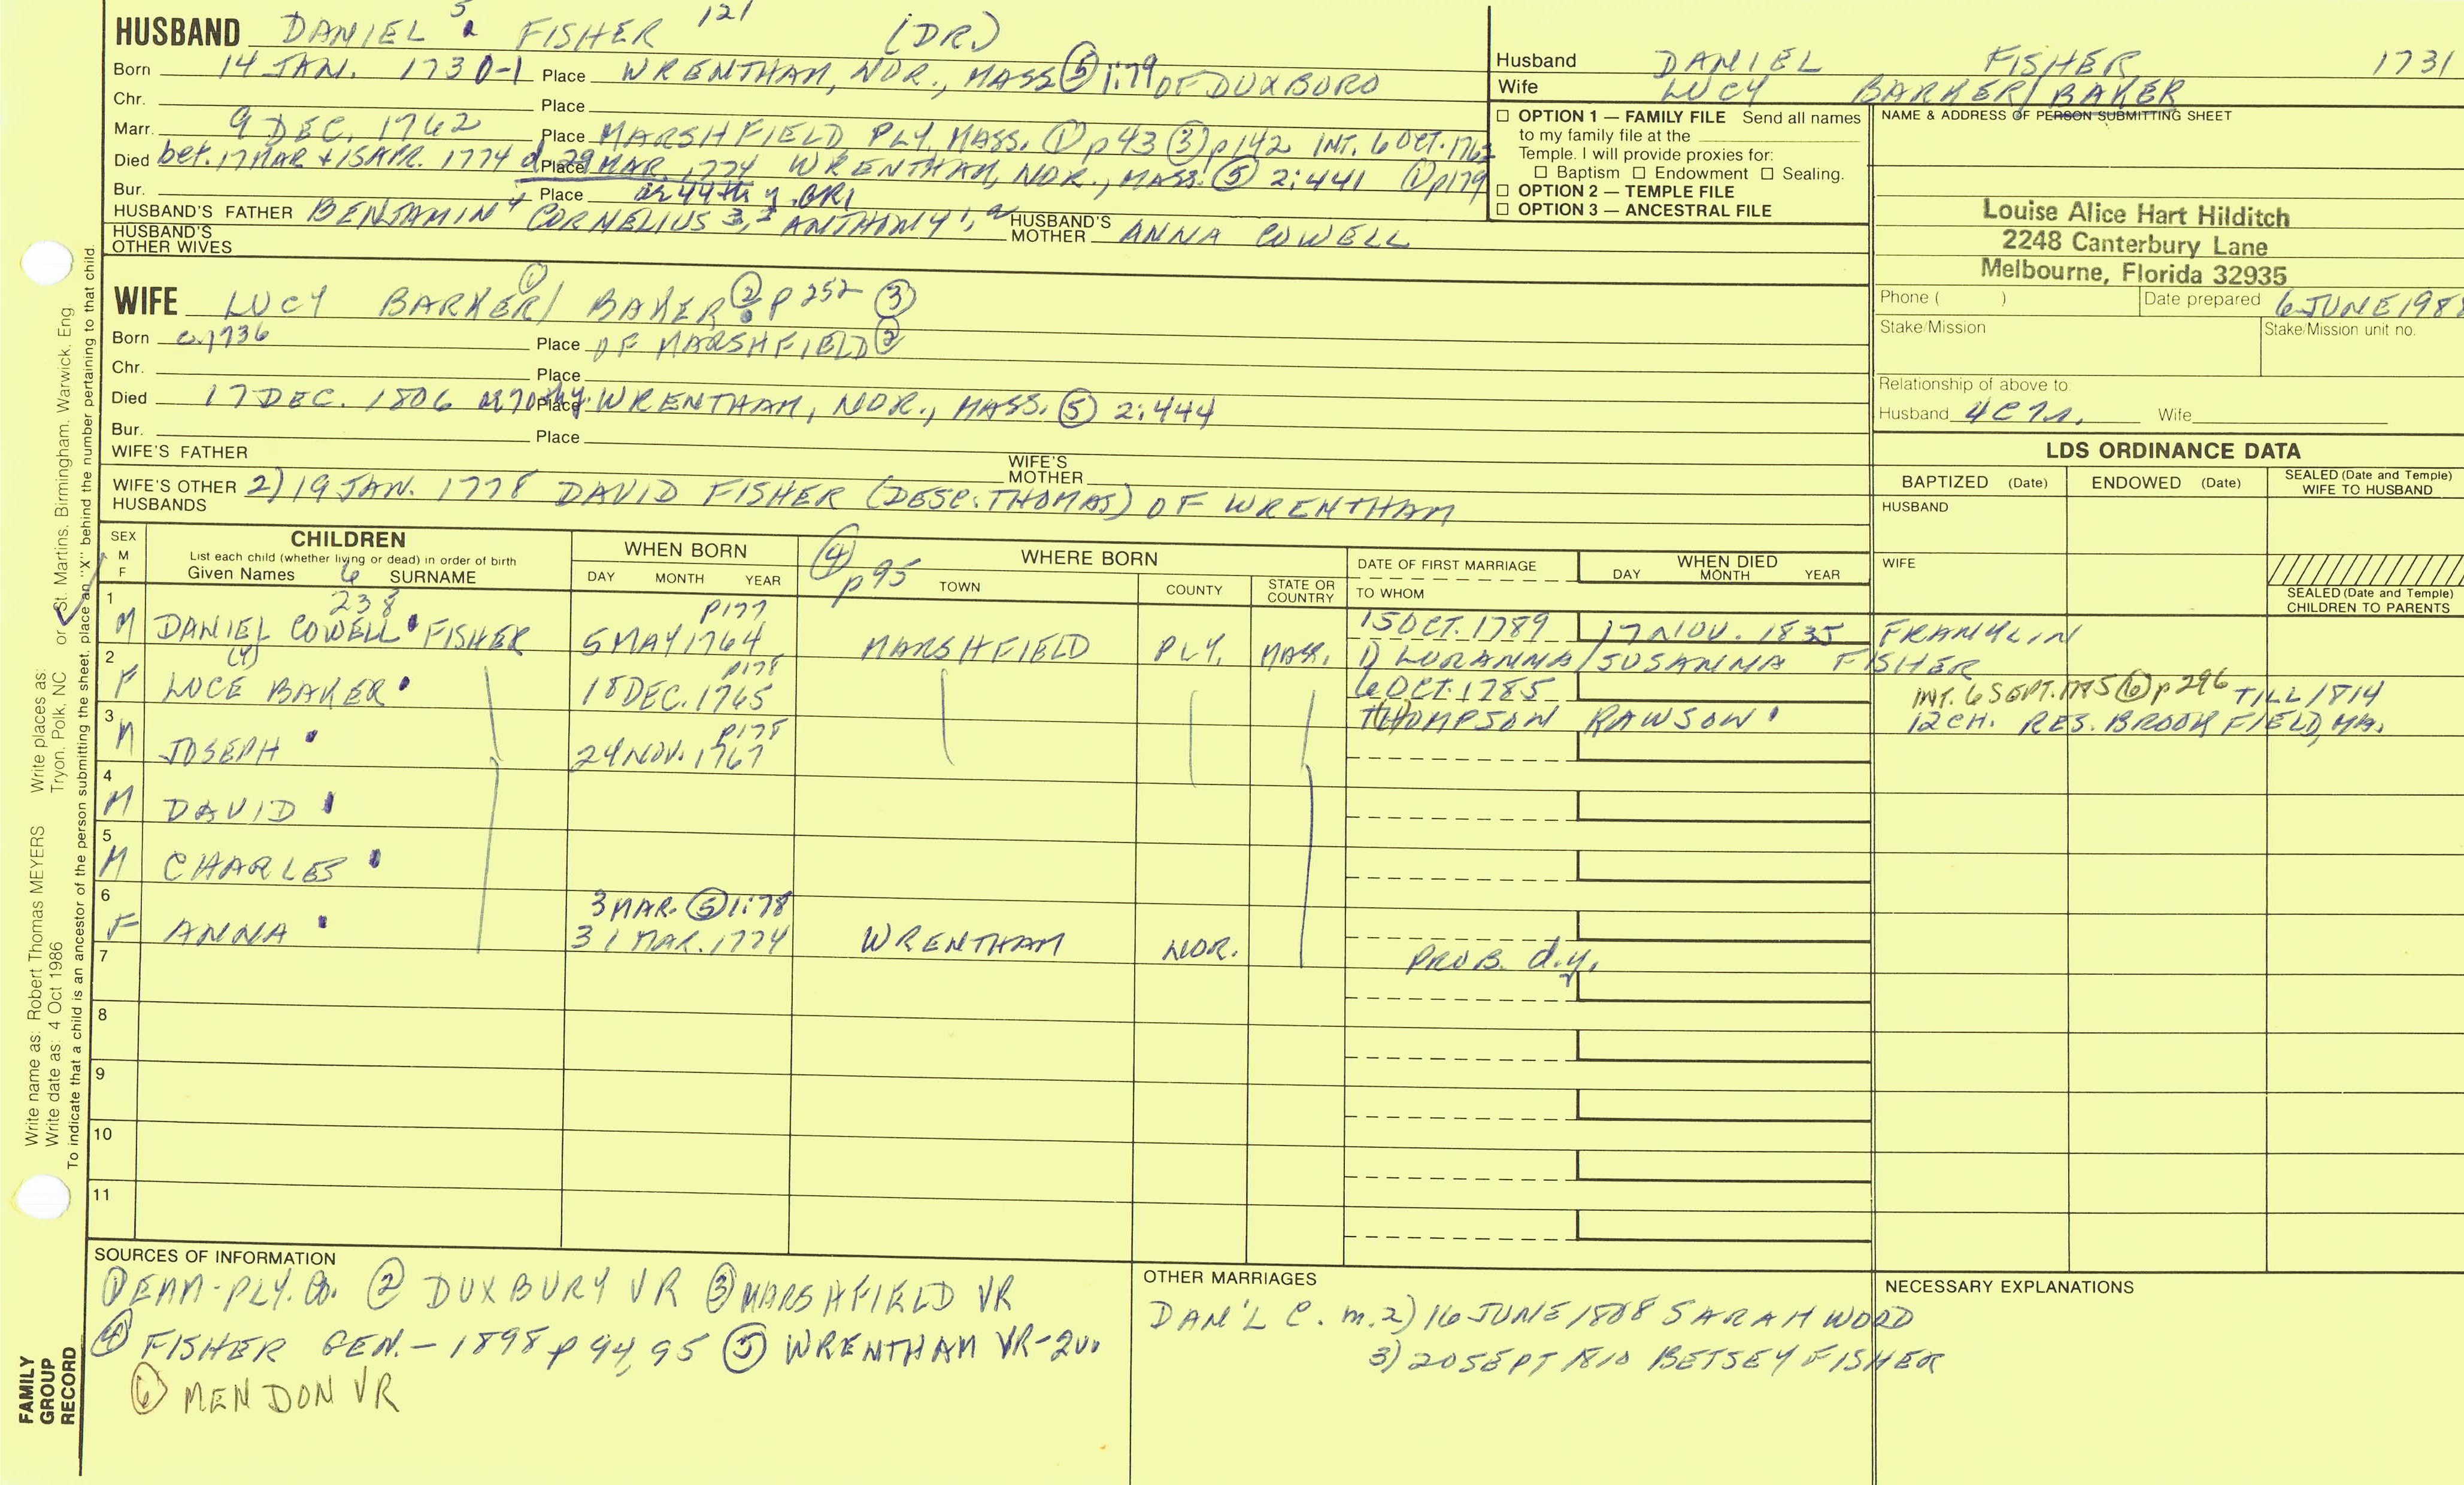 HUSBAND DANIEL 5 FISHER 121 (DR.)
Born 14 JAN. 1730-1 Place WRENTHAM, NOR., MASS ⑤ 1:79 OF DUXBORO
Chr. Place
Marr. 9 DEC. 1762 Place MARSHFIELD, PLY. MASS. ① p43 ③ p142 INT. 6 OCT. 1762
Died bet. 17 MAR + 15 APR. 1774 d. 29 MAR. 1774 Place WRENTHAM, NOR., MASS. ⑤ 2:441 ① p179
Bur. Place ae 44th y. GR1
HUSBAND'S FATHER BENJAMIN 4 CORNELIUS 3, 2 ANTHONY 1, HUSBAND'S MOTHER ANNA COWELL
HUSBAND'S OTHER WIVES
Husband DANIEL FISHER 1731
Wife LUCY BARKER/BAKER
☐ OPTION 1 — FAMILY FILE Send all names
to my family file at the
Temple. I will provide proxies for:
☐ Baptism ☐ Endowment ☐ Sealing.
☐ OPTION 2 — TEMPLE FILE
☐ OPTION 3 — ANCESTRAL FILE
NAME & ADDRESS OF PERSON SUBMITTING SHEET
Louise Alice Hart Hilditch
2248 Canterbury Lane
Melbourne, Florida 32935
Phone ( ) Date prepared 6 JUNE 198
Stake/Mission Stake/Mission unit no.
Relationship of above to
Husband 4C7r. Wife
WIFE LUCY BARKER ① / BAKER ② p 252 ③
Born c.1736 Place OF MARSHFIELD ②
Chr. Place
Died 17 DEC. 1806 ae 70th y. Place WRENTHAM, NOR., MASS. ⑤ 2:444
Bur. Place
WIFE'S FATHER WIFE'S MOTHER
WIFE'S OTHER HUSBANDS 2) 19 JAN. 1778 DAVID FISHER (DESC. THOMAS) OF WRENTHAM
LDS ORDINANCE DATA
BAPTIZED (Date) ENDOWED (Date) SEALED (Date and Temple) WIFE TO HUSBAND
HUSBAND
WIFE
SEALED (Date and Temple) CHILDREN TO PARENTS
SEX M F
CHILDREN
List each child (whether living or dead) in order of birth
Given Names 6 SURNAME
WHEN BORN
DAY MONTH YEAR
④ p95
WHERE BORN
TOWN COUNTY STATE OR COUNTRY
DATE OF FIRST MARRIAGE
TO WHOM
WHEN DIED
DAY MONTH YEAR
1 M DANIEL COWELL FISHER 238 p177 5 MAY 1764 MARSHFIELD PLY. MASS. 15 OCT. 1789 17 NOV. 1835 FRANKLIN
1) LURANNA/SUSANNA FISHER
2 F LUCE (Y) BAKER p178 18 DEC. 1765 6 OCT. 1785 INT. 6 SEPT. 1785 ⑥ p 296 TILL 1814
THOMPSON RAWSON 12 CH. RES. BROOKFIELD, MA.
3 M JOSEPH p178 24 NOV. 1767
4 M DAVID
5 M CHARLES
6 F ANNA 3 MAR. ⑤ 1:78
31 MAR. 1774 WRENTHAM NOR. PROB. d.y.
7
8
9
10
11
SOURCES OF INFORMATION
① EMM-PLY. Co. ② DUXBURY VR ③ MARSHFIELD VR
④ FISHER GEN. - 1898 p 94,95 ⑤ WRENTHAM VR-2v.
⑥ MENDON VR
OTHER MARRIAGES
DAN'L C. m. 2) 16 JUNE 1808 SARAH WOOD
3) 20 SEPT 1810 BETSEY FISHER
NECESSARY EXPLANATIONS
Write name as: Robert Thomas MEYERS Write places as: St. Martins, Birmingham, Warwick, Eng
Write date as: 4 Oct 1986 Tryon, Polk, NC or
To indicate that a child is an ancestor of the person submitting the sheet, place an "X" behind the number pertaining to that child.
FAMILY
GROUP
RECORD